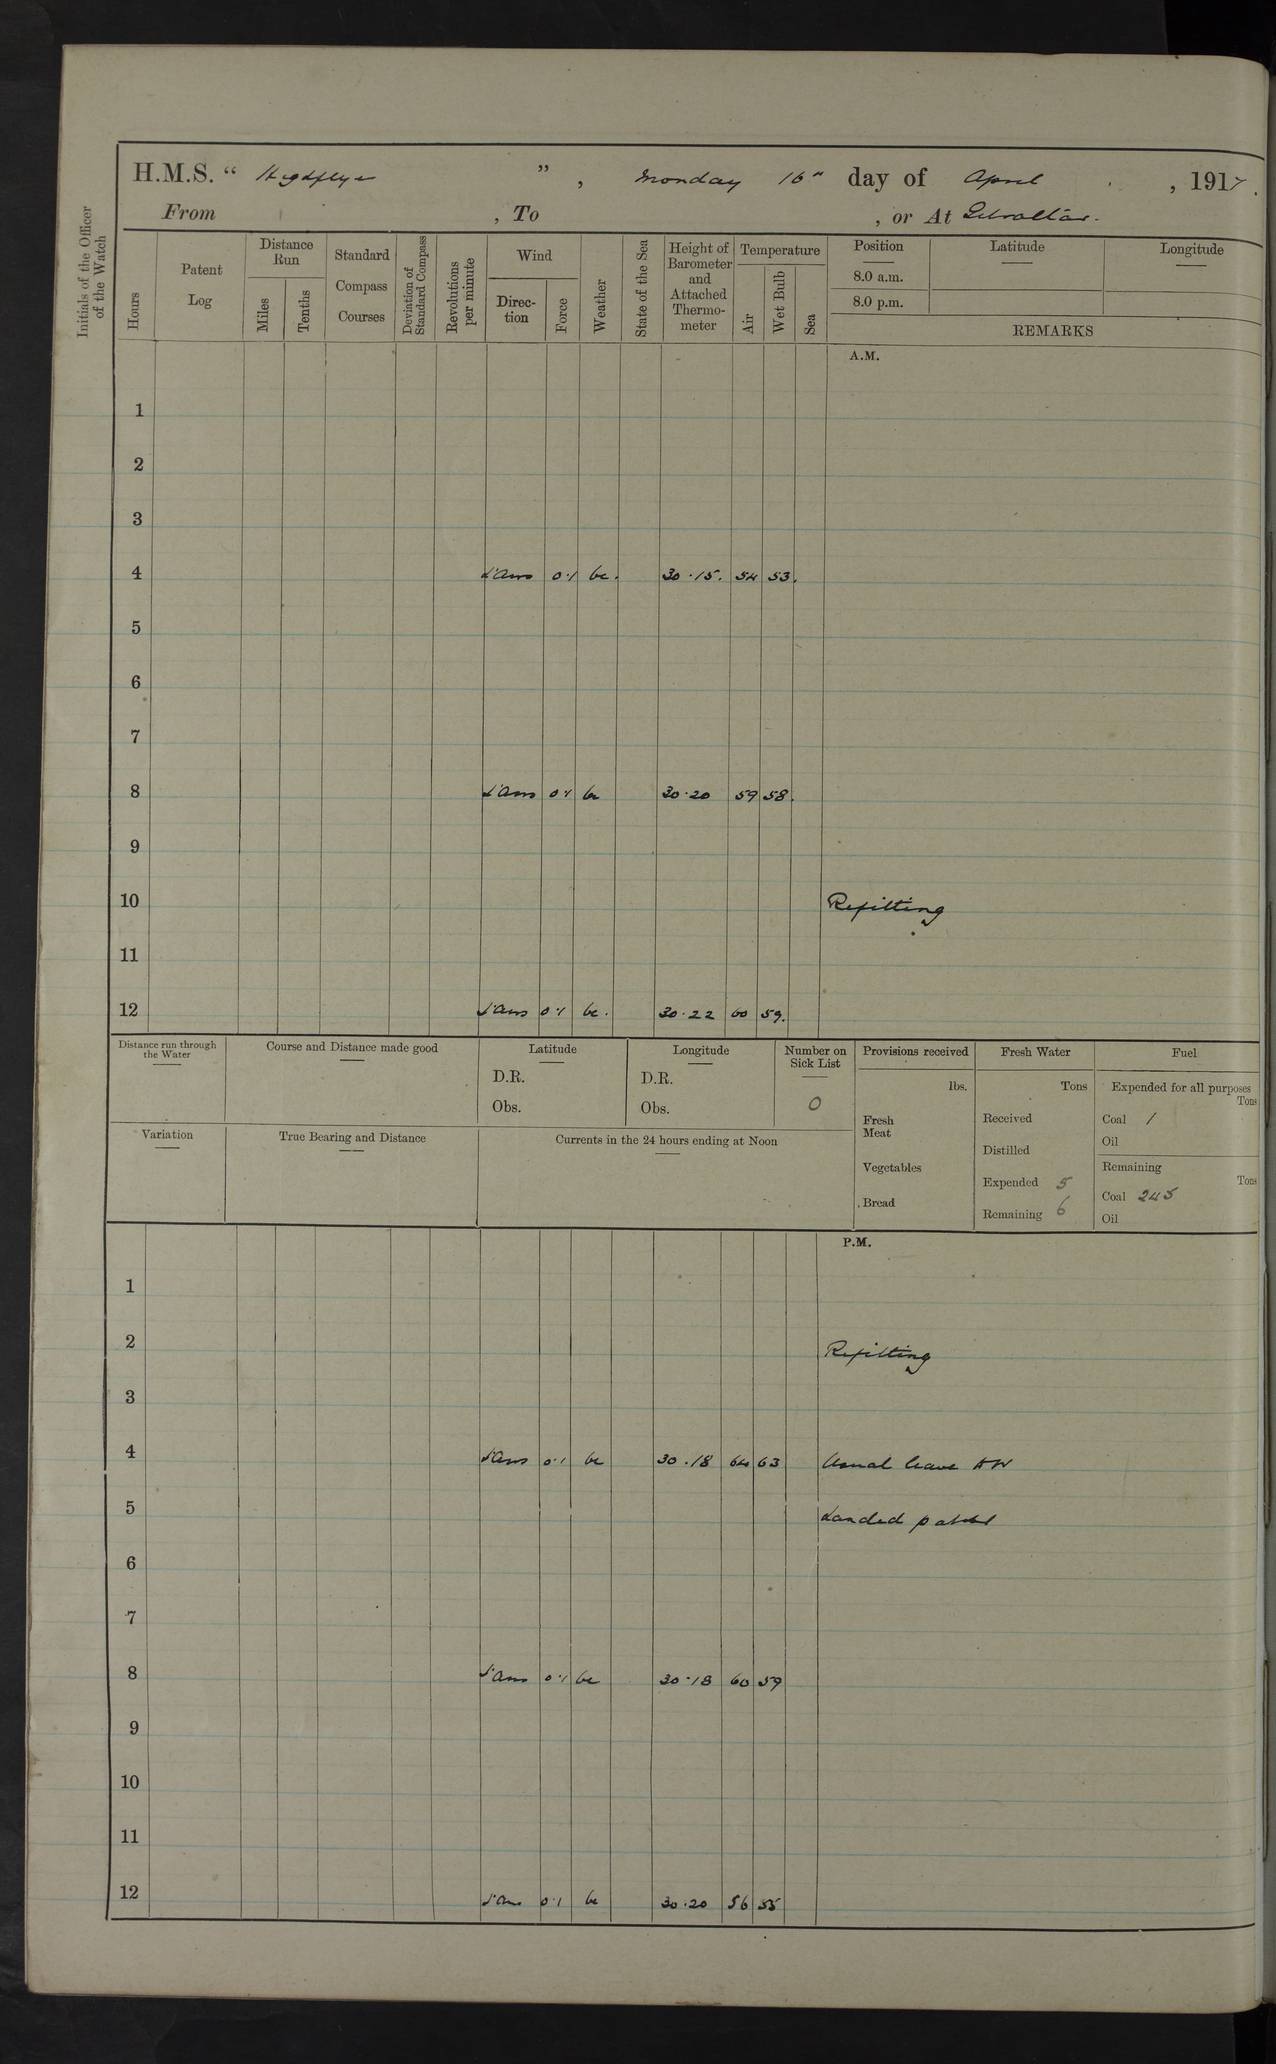 H.M.S. “ Highflyer ” , Monday 16" day of April , 1917.
From , To , or At Gibraltar.
Initials of the Officer of the Watch
Hours
Patent Log
Distance Run
Miles
Tenths
Standard Compass Courses
Deviation of Standard Compass
Revolutions per minute
Wind
Direc-tion
Force
Weather
State of the Sea
Height of Barometer and Attached Thermo-meter
Temperature
Air
Wet Bulb
Sea
Position
8.0 a.m.
8.0 p.m.
Latitude
Longitude
REMARKS
A.M.
1
2
3
4 L'Airs 0·1 bc. 30·15. 54 53.
5
6
7
8 L'Airs 0·1 bc 30·20 59 58.
9
10 Refitting
11
12 L'Airs 0·1 bc. 30·22 60 59.
Distance run through the Water
Course and Distance made good
Latitude
D.R.
Obs.
Longitude
D.R.
Obs.
Number on Sick List
0
Provisions received
lbs.
Fresh Meat
Vegetables
Bread
Fresh Water
Tons
Received
Distilled
Expended 5
Remaining 6
Fuel
Expended for all purposes
Tons
Coal 1
Oil
Remaining
Tons
Coal 245
Oil
Variation
True Bearing and Distance
Currents in the 24 hours ending at Noon
P.M.
1
2 Refitting
3
4 L'Airs 0·1 bc 30·18 64 63 Usual leave
5 Landed patrol
6
7
8 L'Airs 0·1 bc 30·18 60 59
9
10
11
12 L'Airs 0·1 bc 30·20 56 55